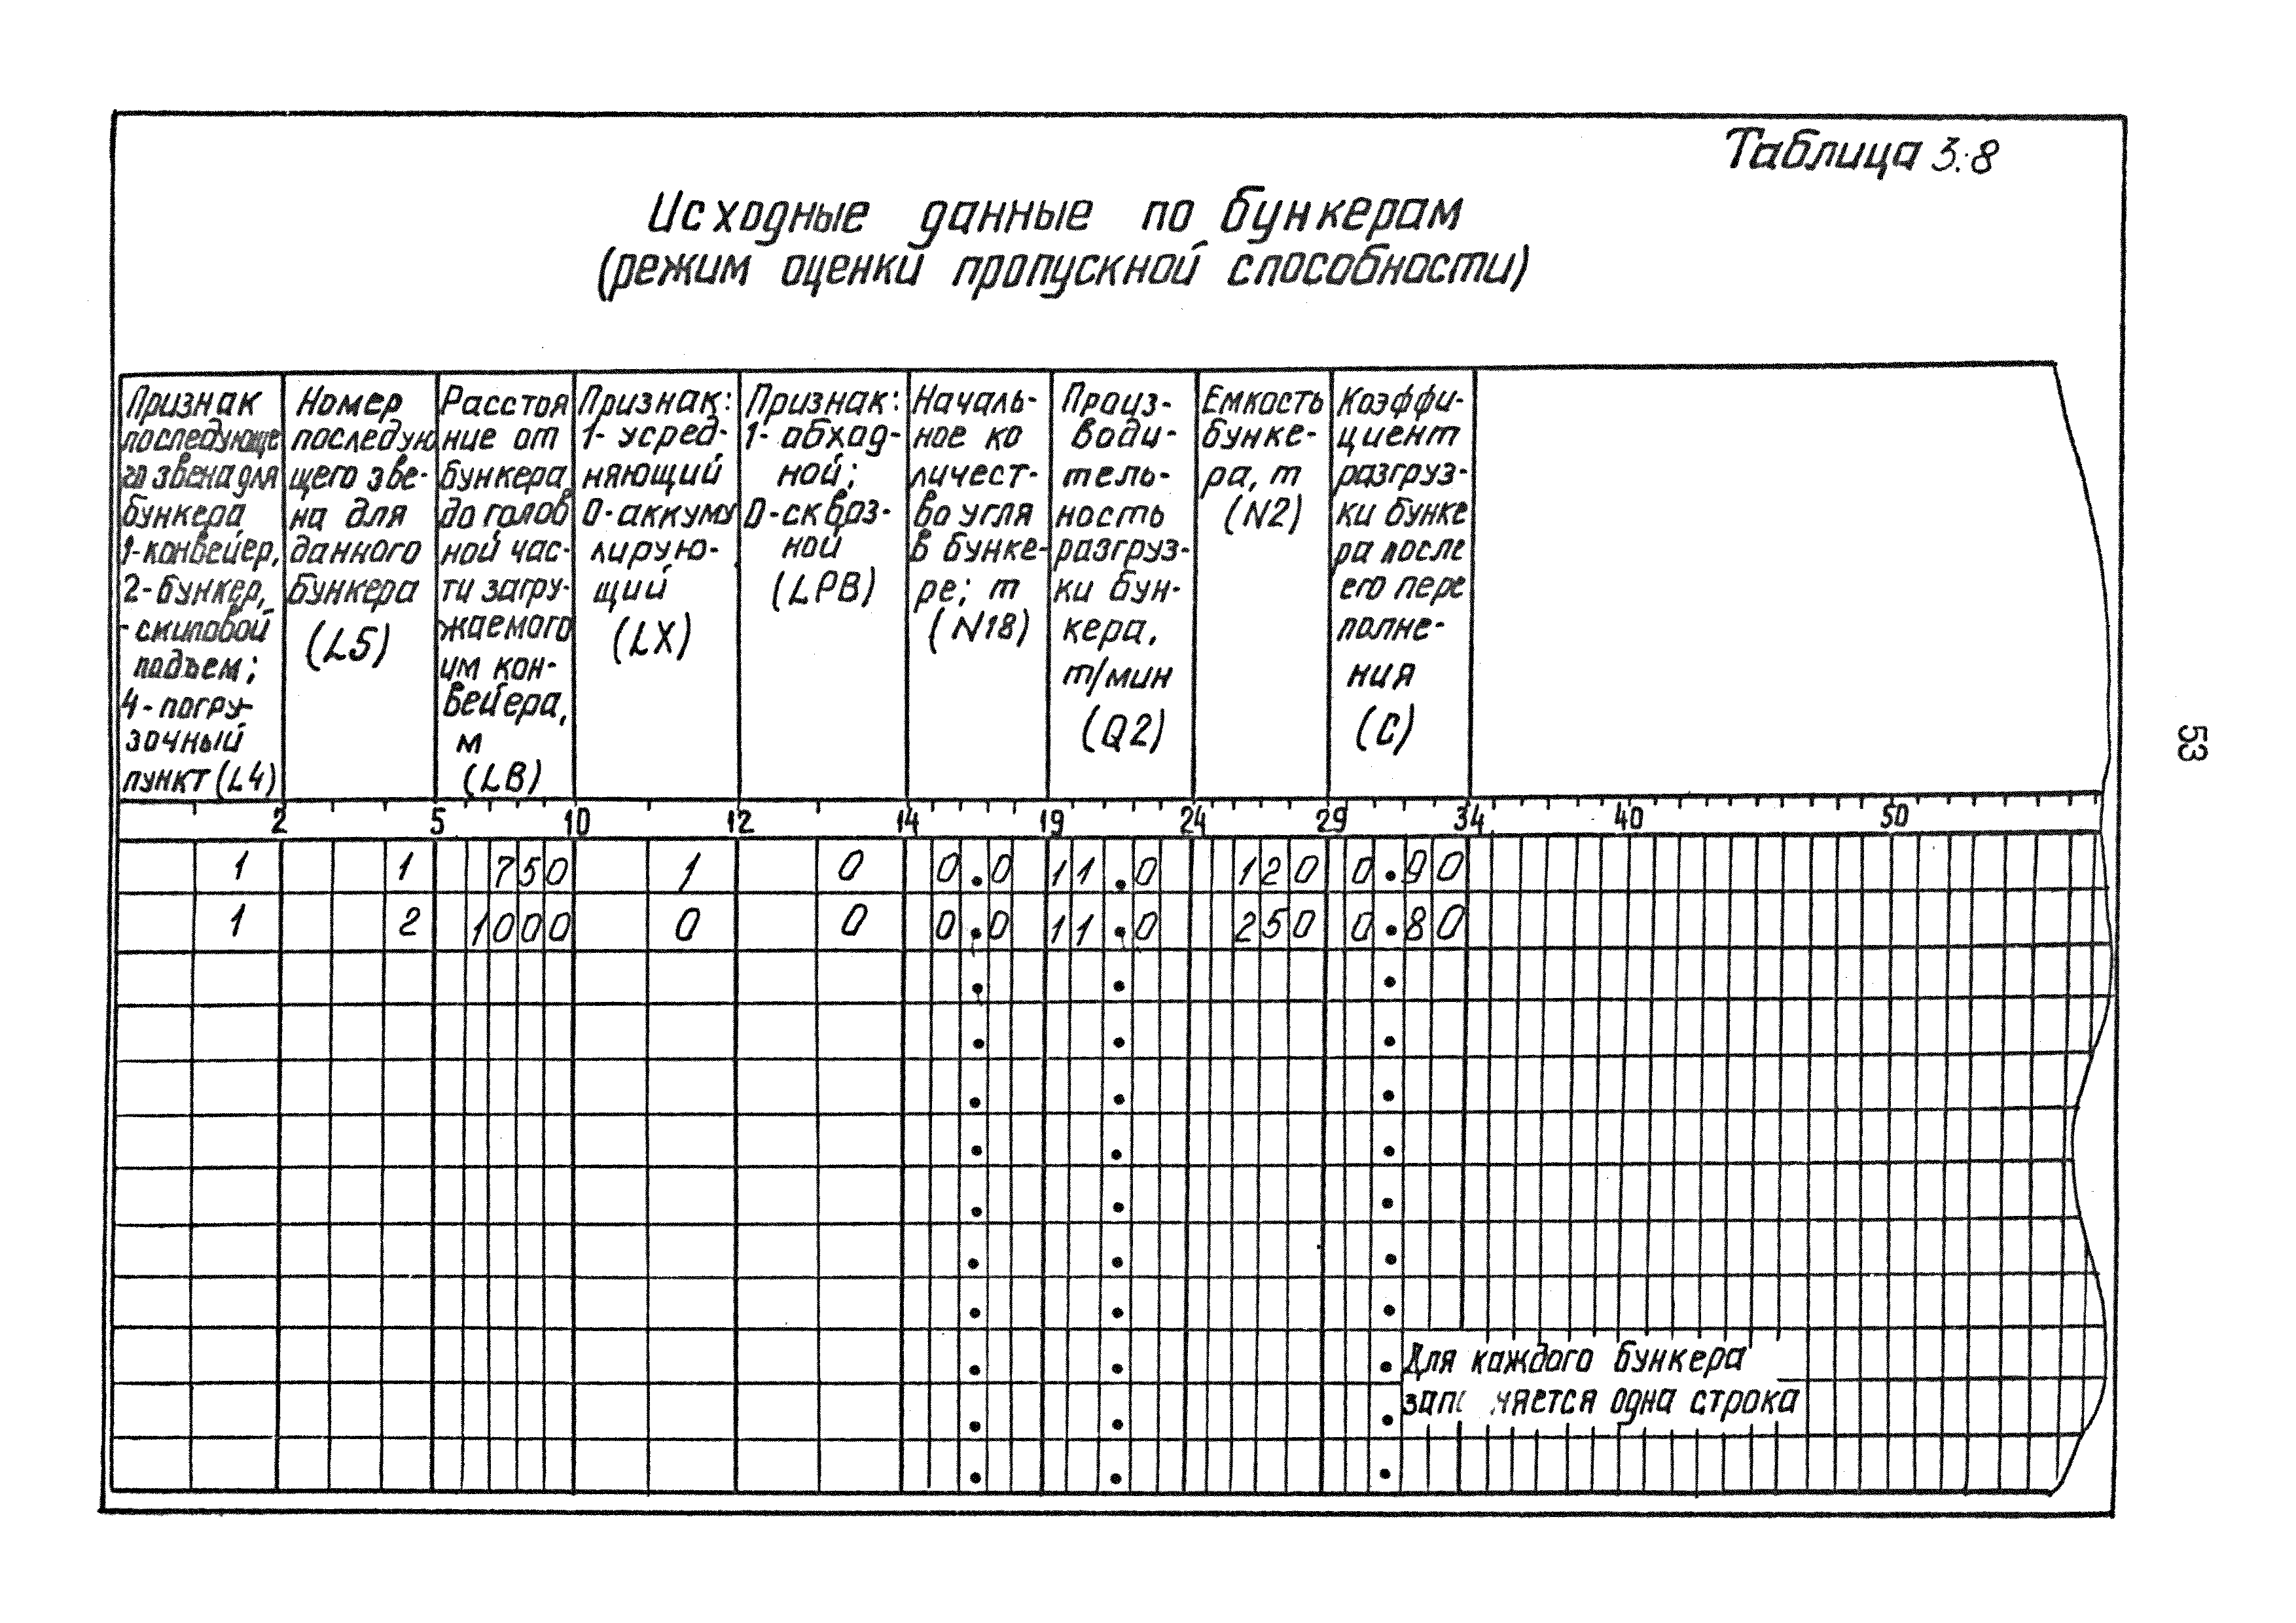 Таблица 3.8
Исходные данные по бункерам
(режим оценки пропускной способности)
Признак
последующе
го звена для
бункера
1-конвейер,
2-бункер,
-скиповой
подъем;
4-погру-
зочный
пункт (L4)
Номер
последую
щего зве-
на для
данного
бункера
(L5)
Расстоя
ние от
бункера
до голов
ной час-
ти загру-
жаемого
им кон-
вейера,
м
(LB)
Признак:
1- усред-
няющий
0-аккуму
лирую-
щий
(LX)
Признак:
1- обход-
ной;
0-сквоз-
ной
(LPB)
Началь-
ное ко
личест-
во угля
в бунке-
ре; т
(N18)
Произ-
води-
тель-
ность
разгруз-
ки бун-
кера,
т/мин
(Q2)
Емкость
бунке-
ра, т
(N2)
Коэффи-
циент
разгруз-
ки бунке
ра после
его пере
полне-
ния
(C)
2 5 10 12 14 19 24 29 34 40 50
1 1 750 1 0 0.0 11.0 120 0.90
1 2 1000 0 0 0.0 11.0 250 0.80
Для каждого бункера
одна строка
53